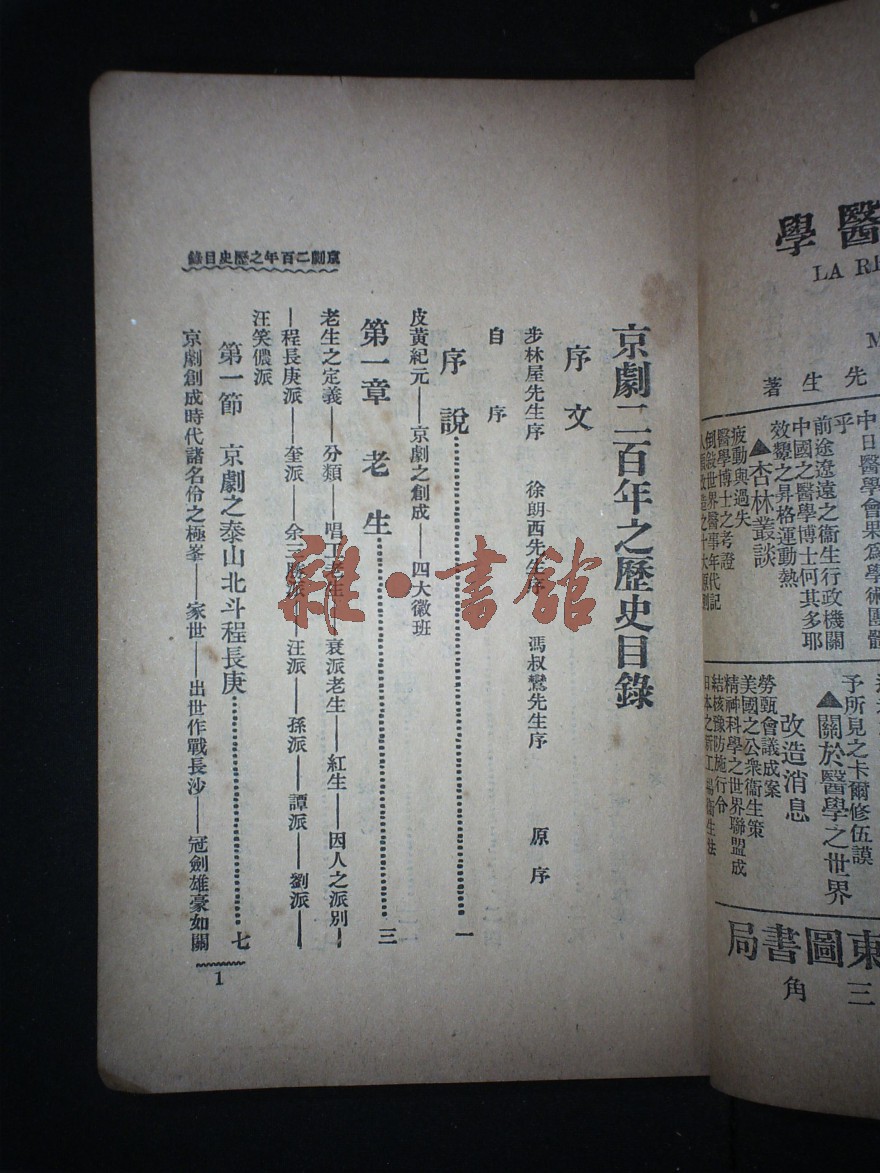 京劇二百年之歷史目錄
序文
步林屋先生序　徐朗西先生序　馮叔鸞先生序　原序
自序
序說…………一
皮黃紀元——京劇之創成——四大徽班
第一章　老生…………三
老生之定義——分類——唱工老生——衰派老生——紅生——因人之派別—
—程長庚派——奎派——余三勝派——汪派——孫派——譚派——劉派——
汪笑儂派
第一節　京劇之泰山北斗程長庚…………七
京劇創成時代諸名伶之極峯——家世——出世作戰長沙——冠劍雄豪如關
京劇二百年之歷史目錄
1
雜·書館
醫學
LA RE
M
先生著
中日醫學會果爲學術團體
乎
前途遼遠之衞生行政機關
中國之醫學博士何其多耶
效顰之昇格運動熱
▲杏林叢談
疲勞與過失
醫學博士之考證
倒敍世界醫事年代記
予所見之卡爾修伍謨
▲關於醫學之世界
改造消息
勞甄會議成案
美國之公衆衞生策
精神科學之世界聯盟成
結核豫防施行令
東圖書局
三角